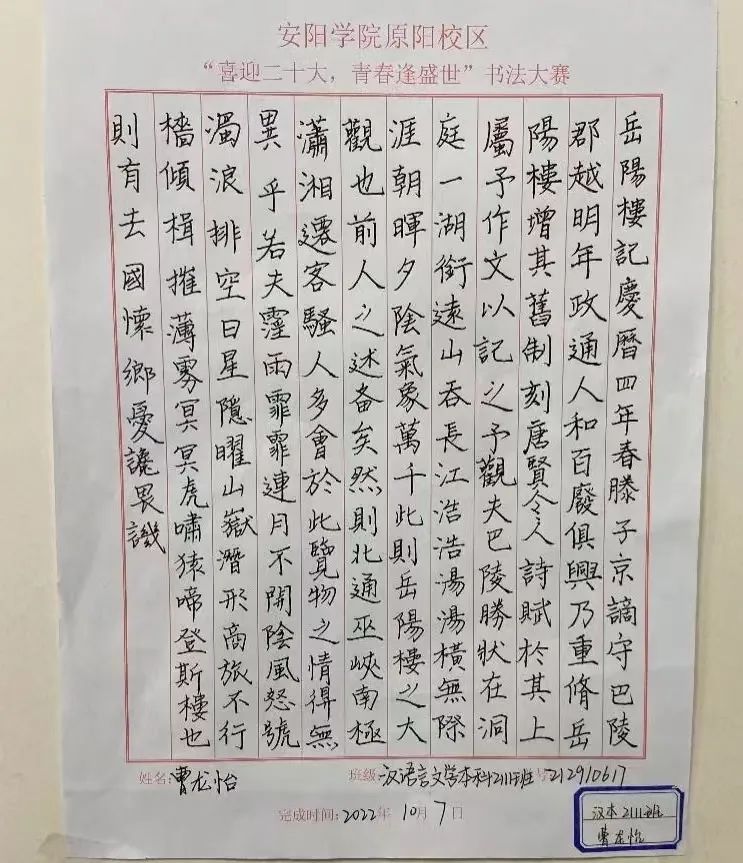 安阳学院原阳校区
“喜迎二十大，青春逢盛世”书法大赛
岳陽樓記慶曆四年春滕子京謫守巴陵
郡越明年政通人和百廢俱興乃重脩岳
陽樓增其舊制刻唐賢今人詩賦於其上
屬予作文以記之予觀夫巴陵勝狀在洞
庭一湖銜遠山吞長江浩浩湯湯橫無際
涯朝暉夕陰氣象萬千此則岳陽樓之大
觀也前人之述备矣然則北通巫峽南極
瀟湘遷客騷人多會於此覽物之情得無
異乎若夫霪雨霏霏連月不開陰風怒號
濁浪排空日星隱曜山嶽潛形商旅不行
檣傾楫摧薄雾冥冥虎嘯猿啼登斯樓也
則有去國懷鄉憂讒畏譏
姓名:曹龙怡
班级:汉语言文学本科2111班 号:212910617
完成时间:2022年10月7日
汉本2111班
曹龙怡